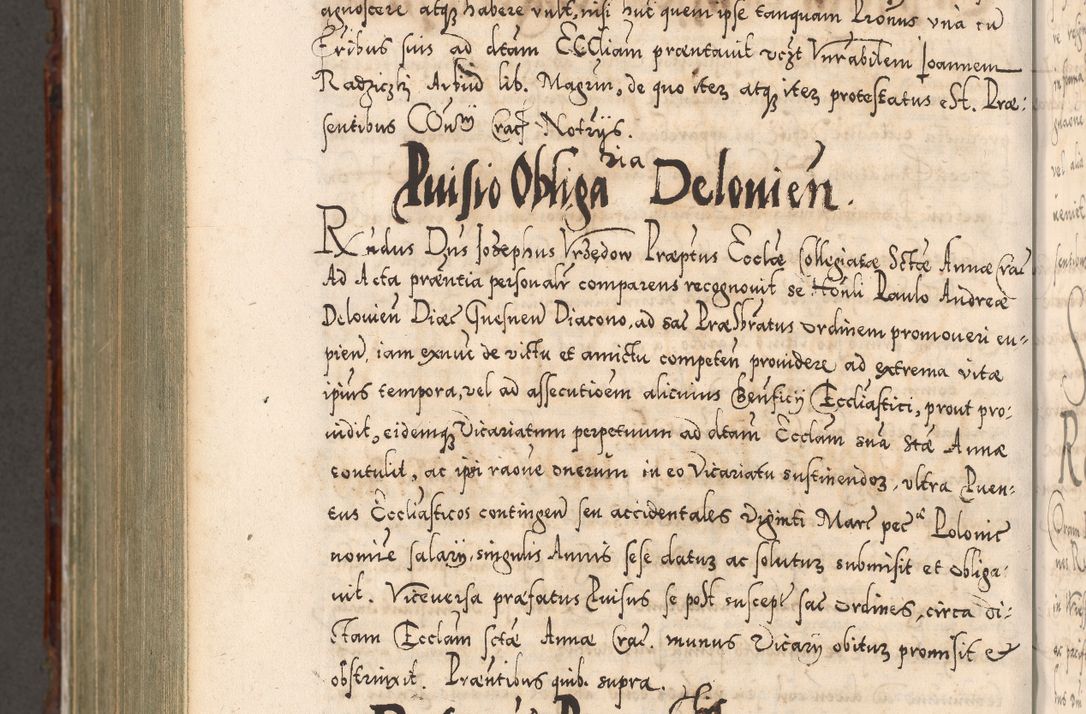 agnoscere atq habere vult, nisi huc quem ipse tanquam Pronus vna cu
Fribus suis ad dtam ECCliam præntauit vczt Vnrabilem Joannem
Radziczkj Artiud lib. Magrm, de quo itez atq itez protestatus est. Præ:
sentibus COnŭ Crac Notrÿs.
Puisio Obligaria Delonień.
Rndus Dns Josephus Vrzędow Præptus Ecclæ Collegiatæ Sctæ Annæ Crac
Ad Acta præntia personalr comparens recognouit se Honli Paulo Andreæ
Delonień Diæc Gnesnen Diacono, ad sac Præsbratus ordinem promoueri cu-
pien, iam exnuc de victu et amictu competeń prouidere ad extrema vitæ
ipius tempora, vel ad assecutioem alicuius Benficij Eccliastici, prout pro:
uidit, eidemq Vicariatum perpetuum ad dtam Ecclam sua Stæ Annæ
contulit, ac ipsi raone onerum in eo Vicariatu sustinendoz, vltra Puen-
tus Eccliasticos contingen seu accidentales viginti Marc pec Polonic
nomie salarij, singulis Annis sese daturz ac soluturz submisit et obliga:
uit. Viceversa præfatus Puisus se post suscept sac ordines, circa di:
ctam Ecclam sctæ Annæ Crac. munus Vicarij obiturz promisit et
obstrinxit. Præntibus quib. supra.